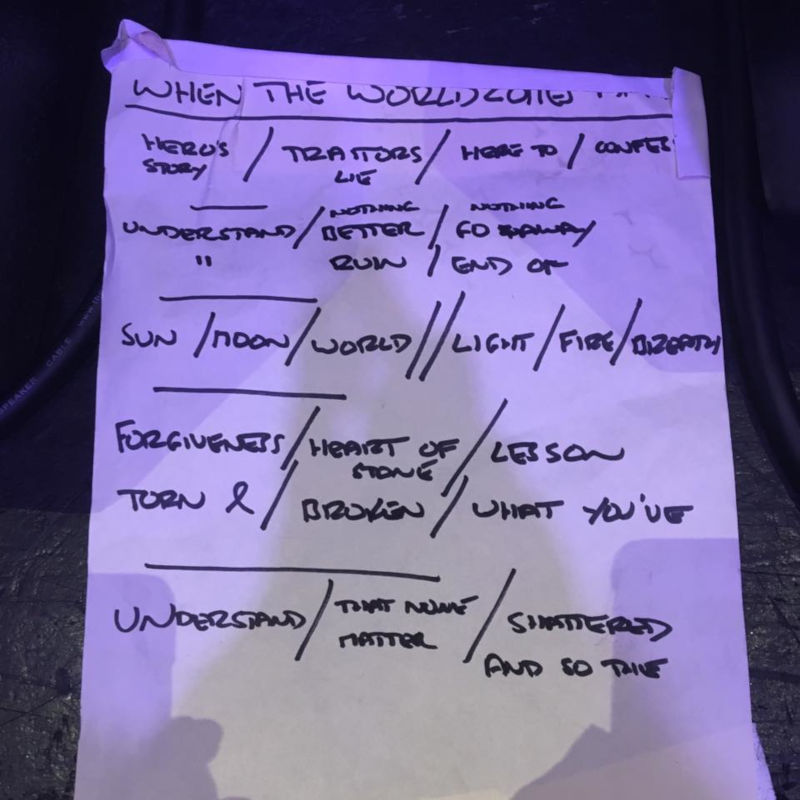 WHEN THE WORLD
HERO'S STORY / TRAITORS LIE / HERE TO / CONFES
UNDERSTAND / NOTHING BETTER / NOTHING GO AWAY
" RUIN / END OF
SUN / MOON / WORLD // LIGHT / FIRE / BREATH
FORGIVENESS / HEART OF STONE / LESSON
TORN & / BROKEN / WHAT YOU'VE
UNDERSTAND / THAT NONE MATTER / SHATTERED
AND SO THE
SPEAKER CABLE